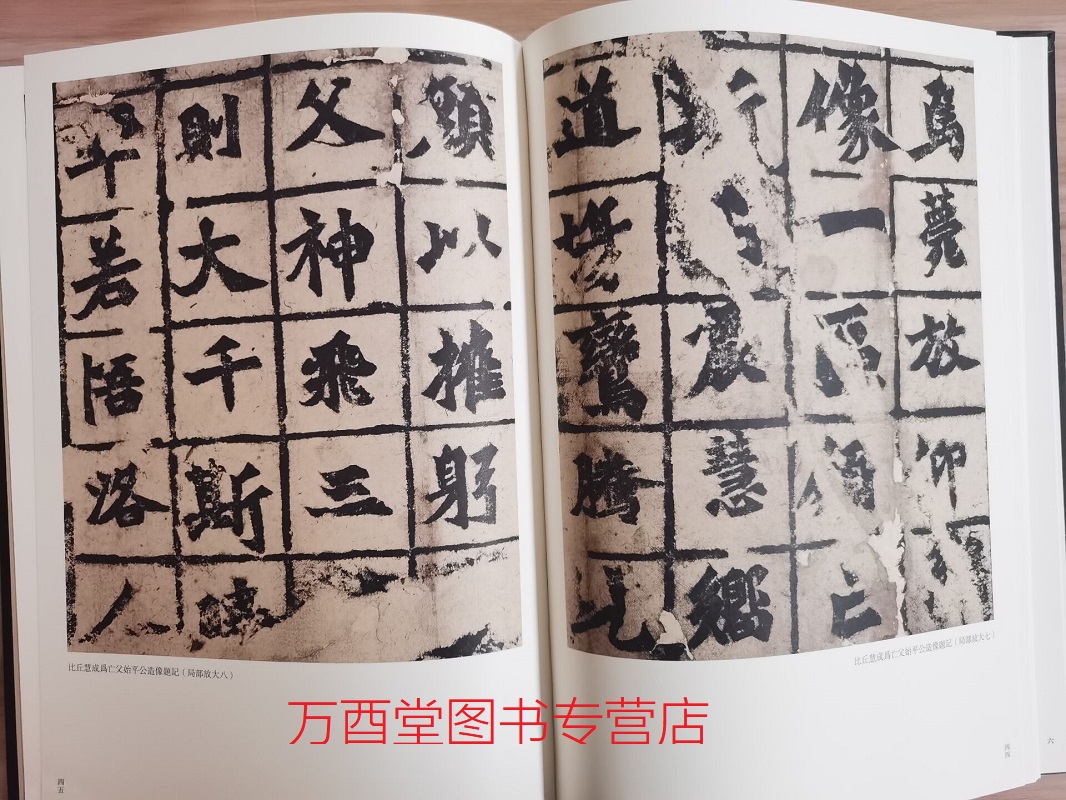 焉薨放仰
像一區願亡
震慧嚮
道場鸞騰兜
顏以摧躬
父神飛三
則大千斯瞭
率若悟洛人
比丘慧成爲亡父始平公造像題記（局部放大七）
比丘慧成爲亡父始平公造像題記（局部放大八）
万西堂图书专营店
四四
四五
六